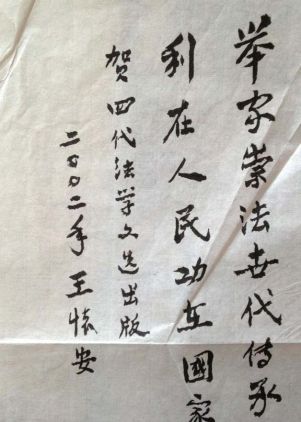 举家崇法世代传承
利在人民功在國家
贺四代法学文选出版
二〇〇二年王怀安